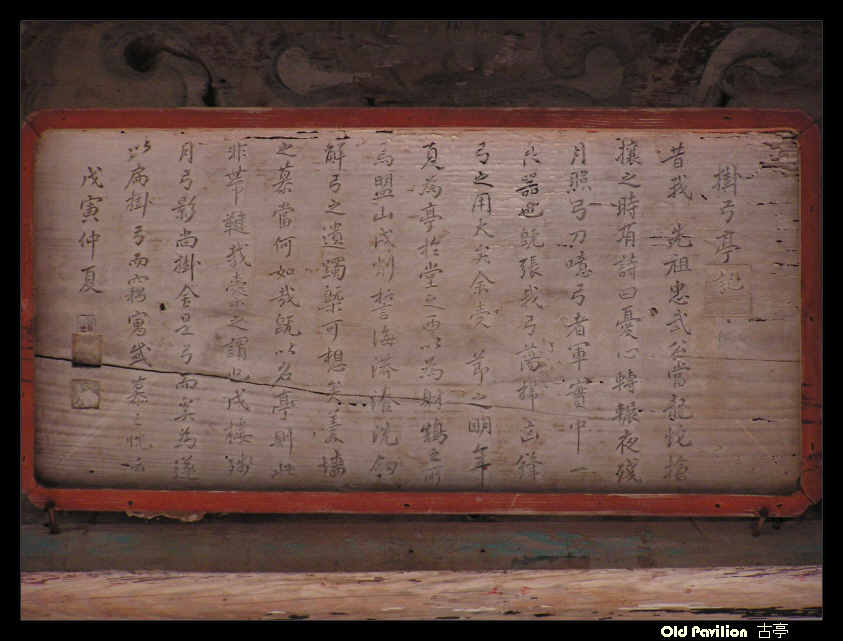 掛弓亭記
昔我 先祖忠武公當龍蛇搶
攘之時有詩曰憂心轉輾夜殘
月照弓刀噫弓者軍實中一
良器也旣張我弓蕩掃凶鋒
弓之用大矣余 之明年
夏爲亭於堂之西以爲射鵠之所
焉盟山戍削誓海漭滄洗釰
解弓之遺躅槩可想矣羹墻
之慕當何如哉旣以名亭則此
非帶鞬載櫜之謂也戍樓殘
月弓影尙掛舍是弓而奚爲遂
以扁掛弓而竊寓感慕之忱云
戊寅仲夏
Old Pavilion 古亭